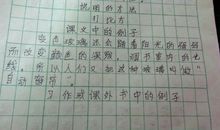 说明的方法
打比方
课文中的例子
变色玻璃还会随着阳光的强弱
而改变颜色的深浅，调节室内的光
线，所以人们又把这种玻璃叫做“
自动窗帘”
习作或课外书中的例子